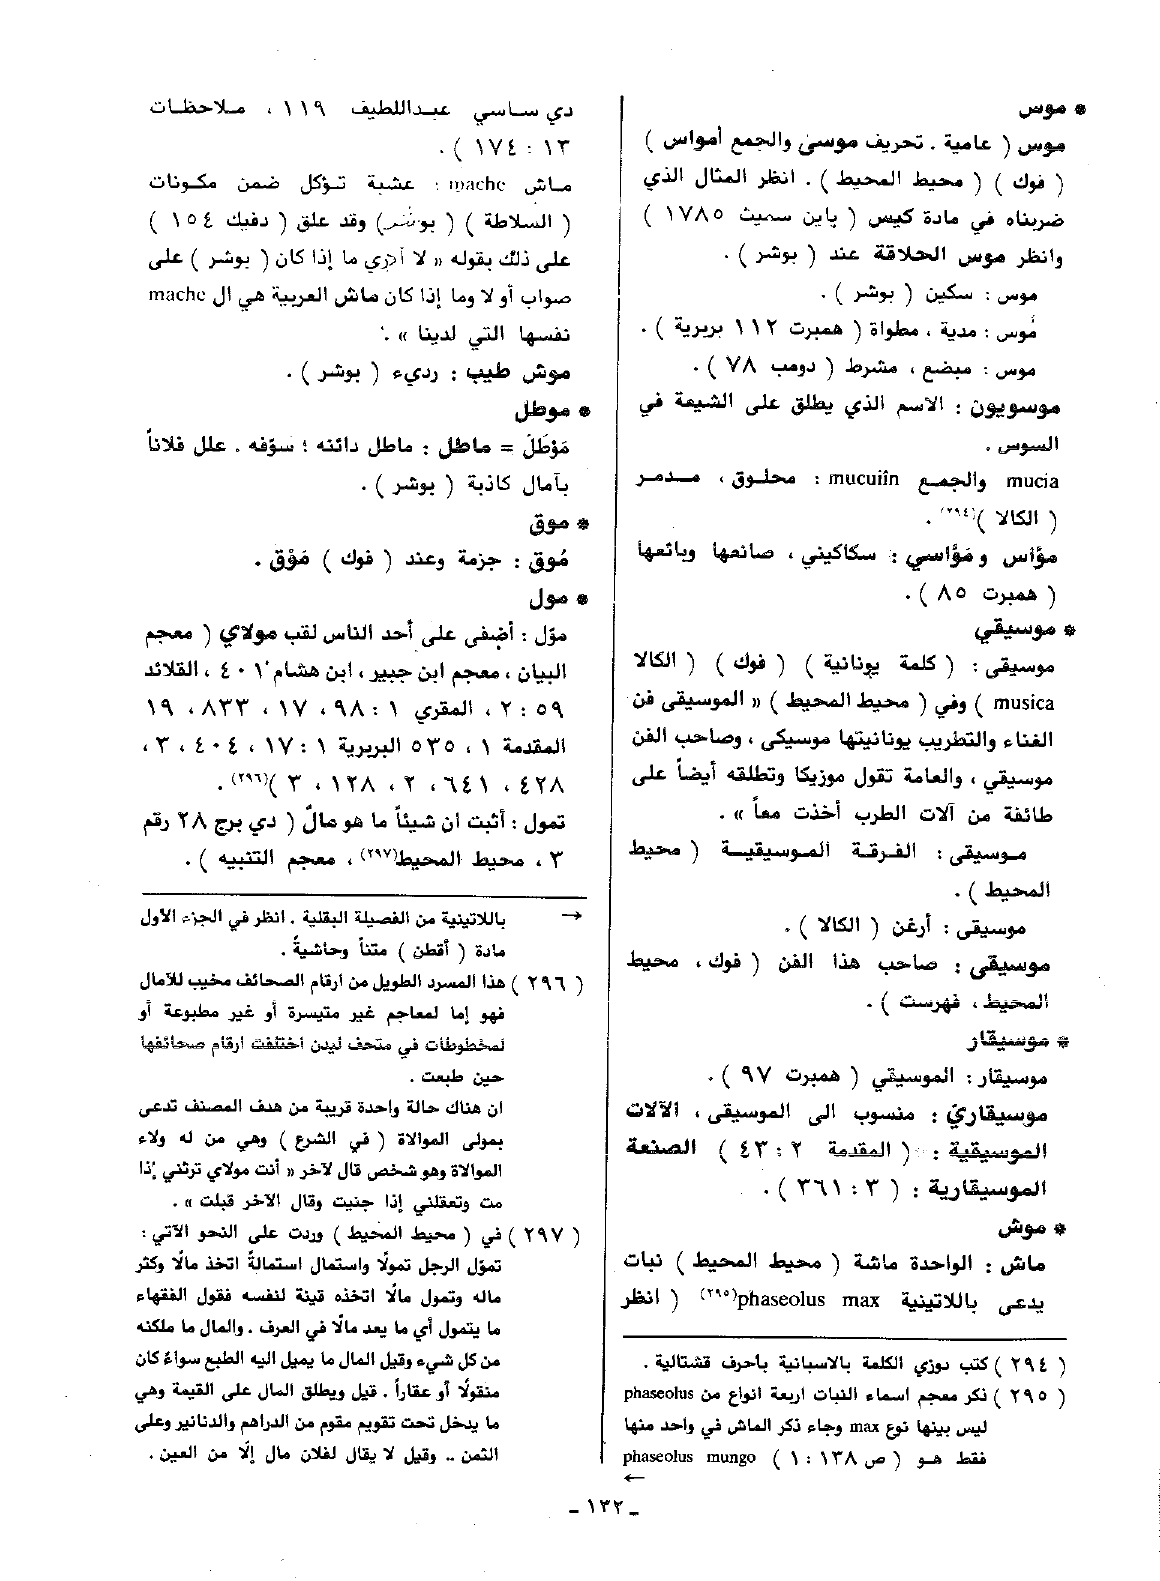 * موس
موس ( عامية . تحريف موسىٰ والجمع أمواس )
( فوك ) ( محيط المحيط ) . انظر المثال الذي
ضربناه في مادة كيس ( پاين سميث ١٧٨٥ )
وانظر موس الحلاقة عند ( بوشر ) .
موس : سكين ( بوشر ) .
مُوس : مدية ، مطواة ( همبرت ١١٢ بربرية ) .
موس : مبضع ، مشرط ( دومب ٧٨ ) .
موسويون : الاسم الذي يطلق على الشيعة في
السوس .
mucia والجمع mucuiîn : محلوق ، مدمر
( الكالا )(٢٩٤) .
موّاس وموّاسي : سكاكيني ، صانعها وبائعها
( همبرت ٨٥ ) .
* موسيقي
موسيقى : ( كلمة يونانية ) ( فوك ) ( الكالا
musica ) وفي ( محيط المحيط ) « الموسيقى فن
الغناء والتطريب يونانيتها موسيكى ، وصاحب الفن
موسيقي ، والعامة تقول موزيكا وتطلقه أيضاً على
طائفة من آلات الطرب أخذت معاً » .
موسيقى : الفرقة الموسيقية ( محيط
المحيط ) .
موسيقى : أرغن ( الكالا ) .
موسيقي : صاحب هذا الفن ( فوك ، محيط
المحيط ، فهرست ) .
* موسيقار
موسيقار : الموسيقي ( همبرت ٩٧ ) .
موسيقاريّ : منسوب الى الموسيقى ، الآلات
الموسيقية : ( المقدمة ٢ : ٤٣ ) الصنعة
الموسيقارية : ( ٣ : ٣٦١ ) .
* موش
ماش : الواحدة ماشة ( محيط المحيط ) نبات
يدعى باللاتينية phaseolus max(٢٩٥) ( انظر
( ٢٩٤ ) كتب دوزي الكلمة بالاسبانية بأحرف قشتالية .
( ٢٩٥ ) ذكر معجم اسماء النبات اربعة انواع من phaseolus
ليس بينها نوع max وجاء ذكر الماش في واحد منها
فقط هو ( ص ١٣٨ : ١ ) phaseolus mungo
←
دي ساسي عبداللطيف ١١٩ ، ملاحظات
١٣ : ١٧٤ ) .
ماش mache : عشبة تؤكل ضمن مكونات
( السلاطة ) ( بوشر ) وقد علق ( دفيك ١٥٤ )
على ذلك بقوله « لا أدري ما إذا كان ( بوشر ) على
صواب أو لا وما إذا كان ماش العربية هي ال mache
نفسها التي لدينا » .
موش طيب : رديء ( بوشر ) .
* موطل
مَوْطَلَ = ماطل : ماطل دائنه ؛ سوّفه . علل فلاناً
بآمال كاذبة ( بوشر ) .
* موق
مُوق : جزمة وعند ( فوك ) مَوْق .
* مول
موّل : أضفى على أحد الناس لقب مولاي ( معجم
البيان ، معجم ابن جبير ، ابن هشام ٤٠١ ، القلائد
٥٩ : ٢ ، المقري ١ : ٩٨ ، ١٧ ، ٨٣٣ ، ١٩
المقدمة ١ ، ٥٣٥ البربرية ١ : ١٧ ، ٤٠٤ ، ٣ ،
٤٢٨ ، ٦٤١ ، ٢ ، ١٢٨ ، ٣ )(٢٩٦) .
تمول : أثبت ان شيئاً ما هو مالٌ ( دي برج ٢٨ رقم
٣ ، محيط المحيط(٢٩٧) ، معجم التنبيه ) .
→ باللاتينية من الفصيلة البقلية . انظر في الجزء الأول
مادة ( أقطن ) متناً وحاشيةً .
( ٢٩٦ ) هذا المسرد الطويل من ارقام الصحائف مخيب للآمال
فهو إما لمعاجم غير متيسرة أو غير مطبوعة أو
لمخطوطات في متحف ليدن اختلفت ارقام صحائفها
حين طبعت .
ان هناك حالة واحدة قريبة من هدف المصنف تدعى
بمولى الموالاة ( في الشرع ) وهي من له ولاء
الموالاة وهو شخص قال لآخر « أنت مولاي ترثني إذا
مت وتعقلني إذا جنيت وقال الآخر قبلت » .
( ٢٩٧ ) في ( محيط المحيط ) وردت على النحو الآتي :
تموّل الرجل تمولًا واستمال استمالةً اتخذ مالًا وكثر
ماله وتمول مالًا اتخذه قينة لنفسه فقول الفقهاء
ما يتمول أي ما يعد مالًا في العرف . والمال ما ملكته
من كل شيء وقيل المال ما يميل اليه الطبع سواءً كان
منقولًا أو عقاراً . قيل ويطلق المال على القيمة وهي
ما يدخل تحت تقويم مقوم من الدراهم والدنانير وعلى
الثمن .. وقيل لا يقال لفلان مال إلّا من العين .
ـ ١٣٢ ـ